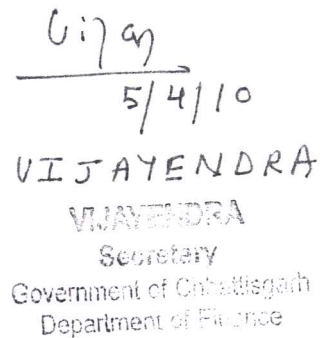 5/4/10
VIJAYENDRA
VIJAYENDRA
Secretary
Government of Chhattisgarh
Department of Finance